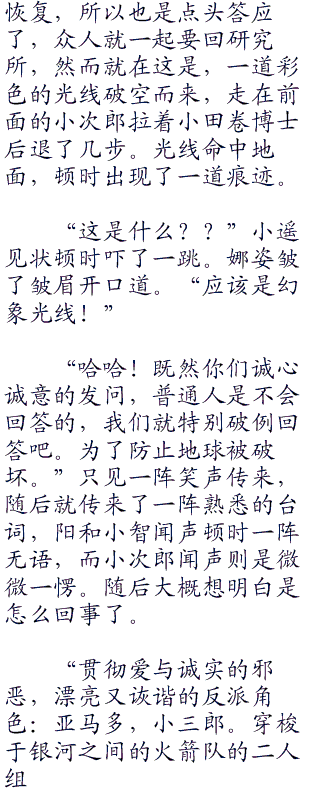 恢复，所以也是点头答应
了，众人就一起要回研究
所，然而就在这是，一道彩
色的光线破空而来，走在前
面的小次郎拉着小田卷博士
后退了几步。光线命中地
面，顿时出现了一道痕迹。
“这是什么？？”小遥
见状顿时吓了一跳。娜姿皱
了皱眉开口道。“应该是幻
象光线！”
“哈哈！既然你们诚心
诚意的发问，普通人是不会
回答的，我们就特别破例回
答吧。为了防止地球被破
坏。”只见一阵笑声传来，
随后就传来了一阵熟悉的台
词，阳和小智闻声顿时一阵
无语，而小次郎闻声则是微
微一愣。随后大概想明白是
怎么回事了。
“贯彻爱与诚实的邪
恶，漂亮又诙谐的反派角
色：亚马多，小三郎。穿梭
于银河之间的火箭队的二人
组